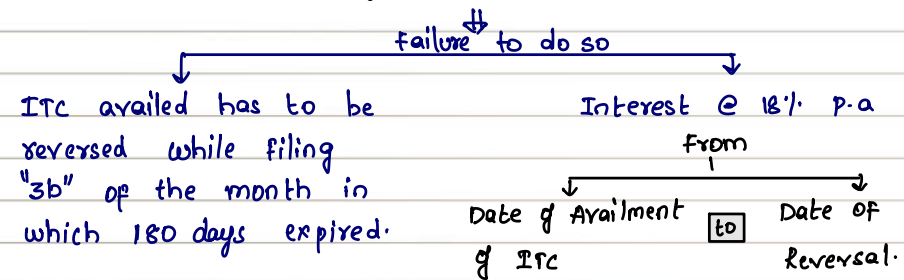 Failure to do so
ITC availed has to be
reversed while filing
"3b" of the month in
which 180 days expired.
Interest @ 18% p.a
From
Date of Availment
of ITC
to
Date of
Reversal.